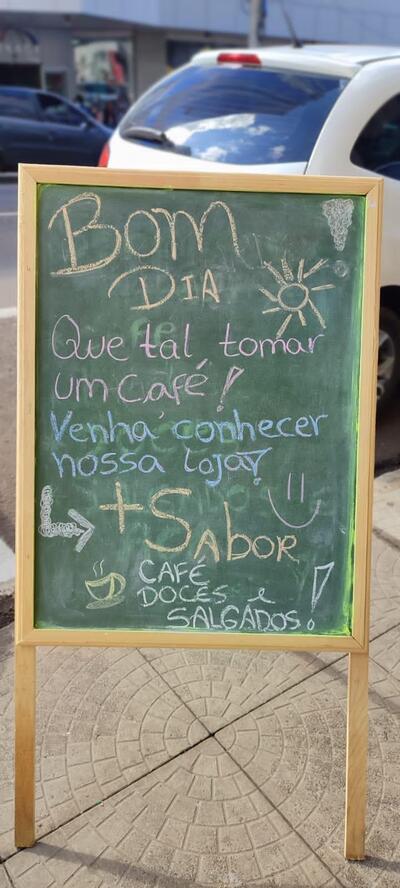 Bom
DIA
Que tal tomar
um café!
Venha conhecer
nossa loja!
+ Sabor
CAFÉ
DOCES e
SALGADOS!